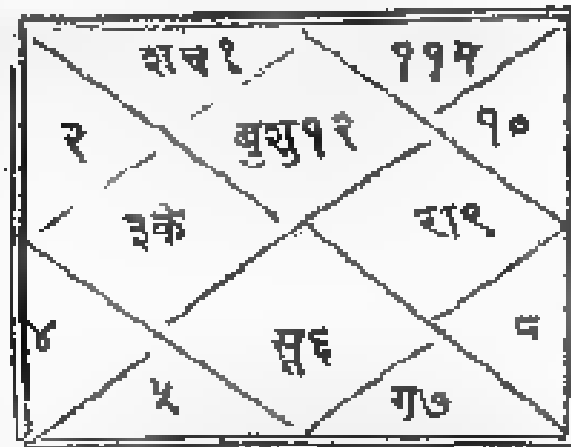 शच१ ११म
२ बुशु१२ १०
३के रा९
४ सू६ ८
५ ग७